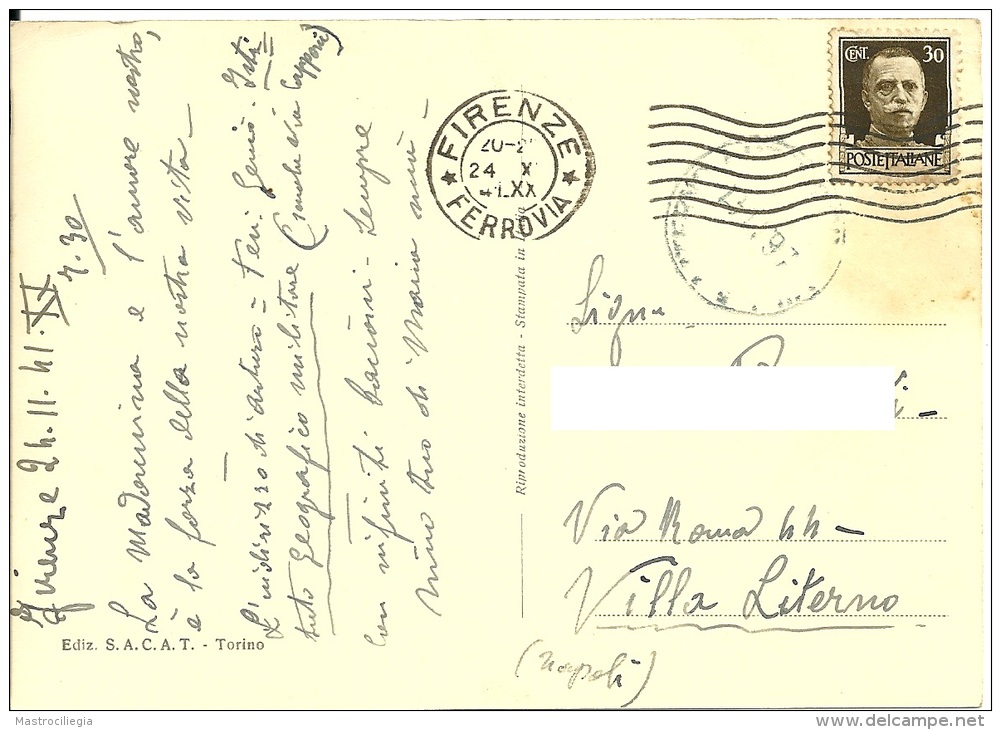 Firenze 24.11.41.XX r. 30
La Madonnina e l'amore nostro,
è la forza della nostra vita –
L'indirizzo di Arturo = Ten. Genio - Isti
tuto Geografico militare (anche via Capponi)
con infiniti bacioni - Sempre
mino tuo di Maria mimì –
Ediz. S.A.C.A.T. - Torino
Riproduzione interdetta - Stampata in Italia
FIRENZE
20-2
24 X
41.XX
FERROVIA
CENT. 30
POSTE ITALIANE
Sign.a
Via Roma 44 –
Villa Literno
(Napoli)
Mastrociliegia
www.delcampe.net